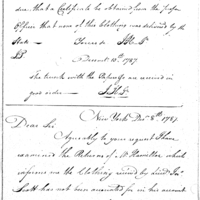 due that a Certificate be obtained from the proper
Officer that none of this Clothing was delivered by the
State —
Decem'r 10th 1787
the trunk with the Papers &c are received in
good order —
New York Decr 8th 1787
Dear Sir
Agreeably to your request I have
examined the Returns of Mr Hamilton which
informs me the Clothing received by
Scott has not been accounted for in his account